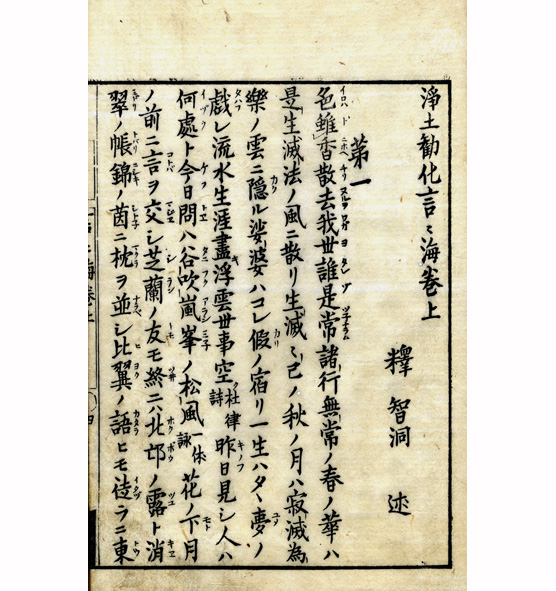 淨土勧化言〻海巻上
釋 智洞 述
第一
色雖香散去我世誰是常諸行無常ノ春ノ華ハ
是生滅法ノ風ニ散リ生滅〻已ノ秋ノ月ハ寂滅為
樂ノ雲ニ隠ル娑婆ハコレ假ノ宿リ一生ハタヾ夢ノ
戯レ流水生涯盡浮雲世事空杜律詩昨日見シ人ハ
何處ト今日問ハ谷吹嵐峯ノ松風一休詠花ノ下月
ノ前ニ言ヲ交シ芝蘭ノ友モ終ニハ北邙ノ露ト消
翠ノ帳錦ノ茵ニ枕ヲ並シ比翼ノ語ヒモ徒ラニ東